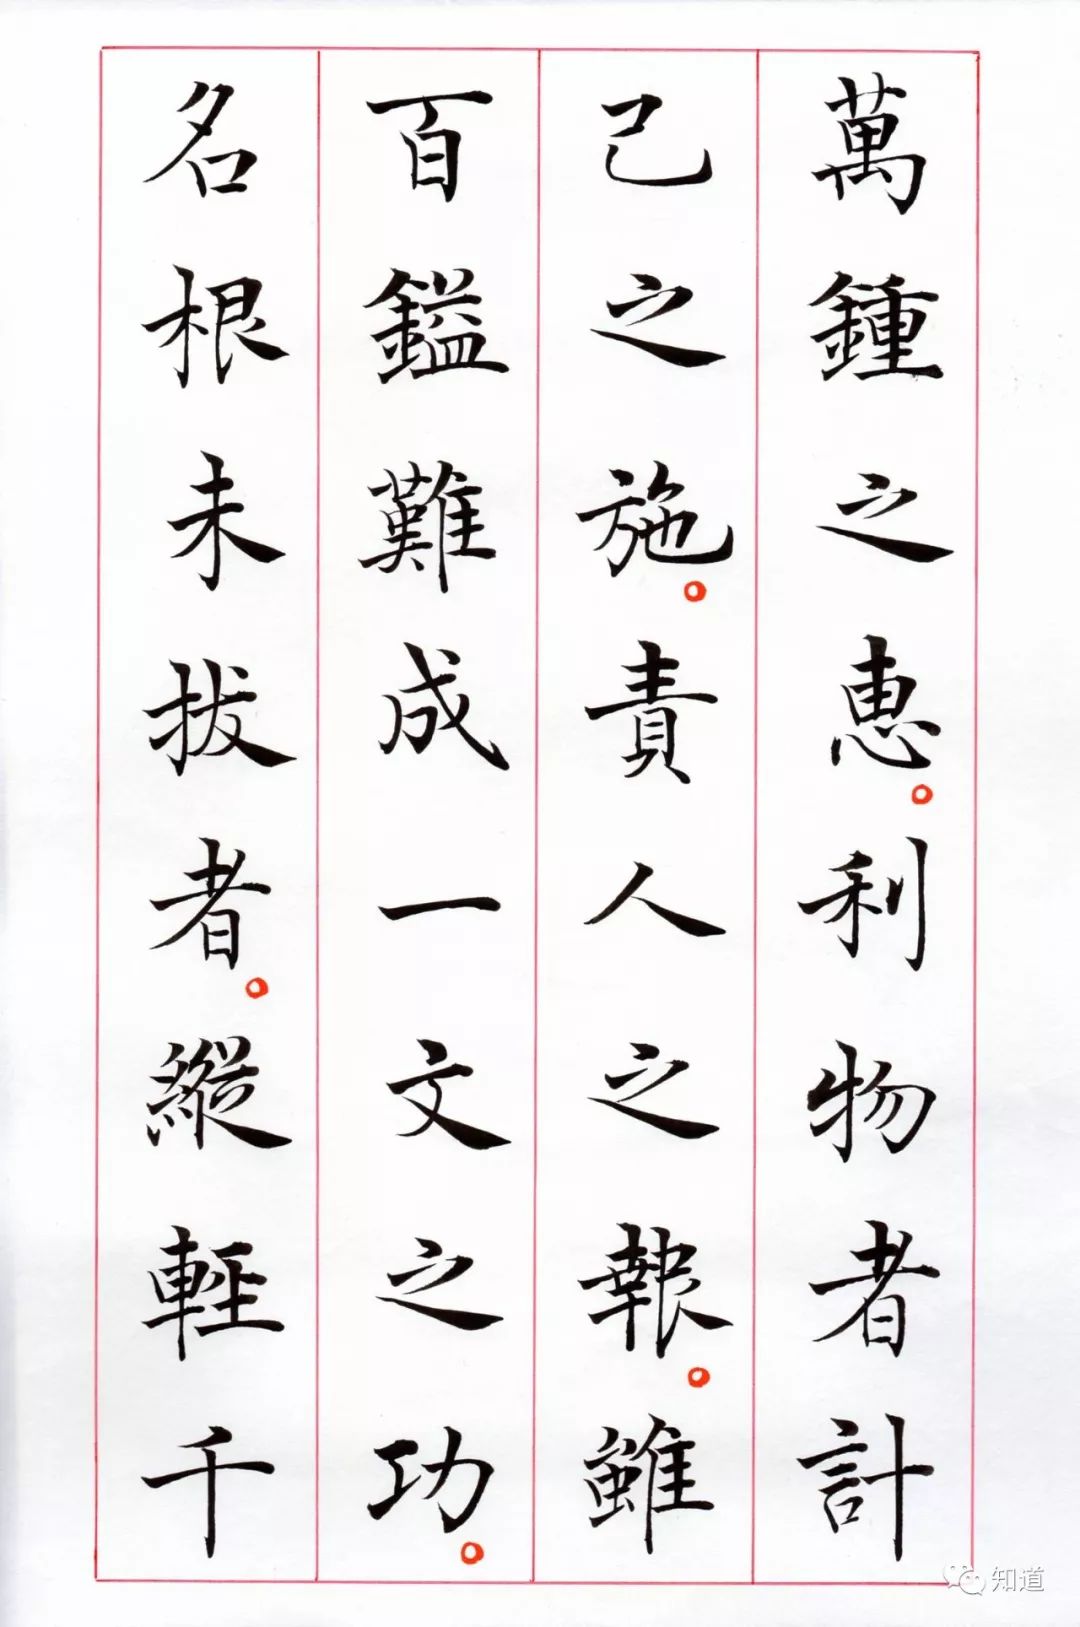 萬鍾之惠。利物者計
己之施。責人之報。雖
百鎰難成一文之功。
名根未拔者。縱輕千
知道